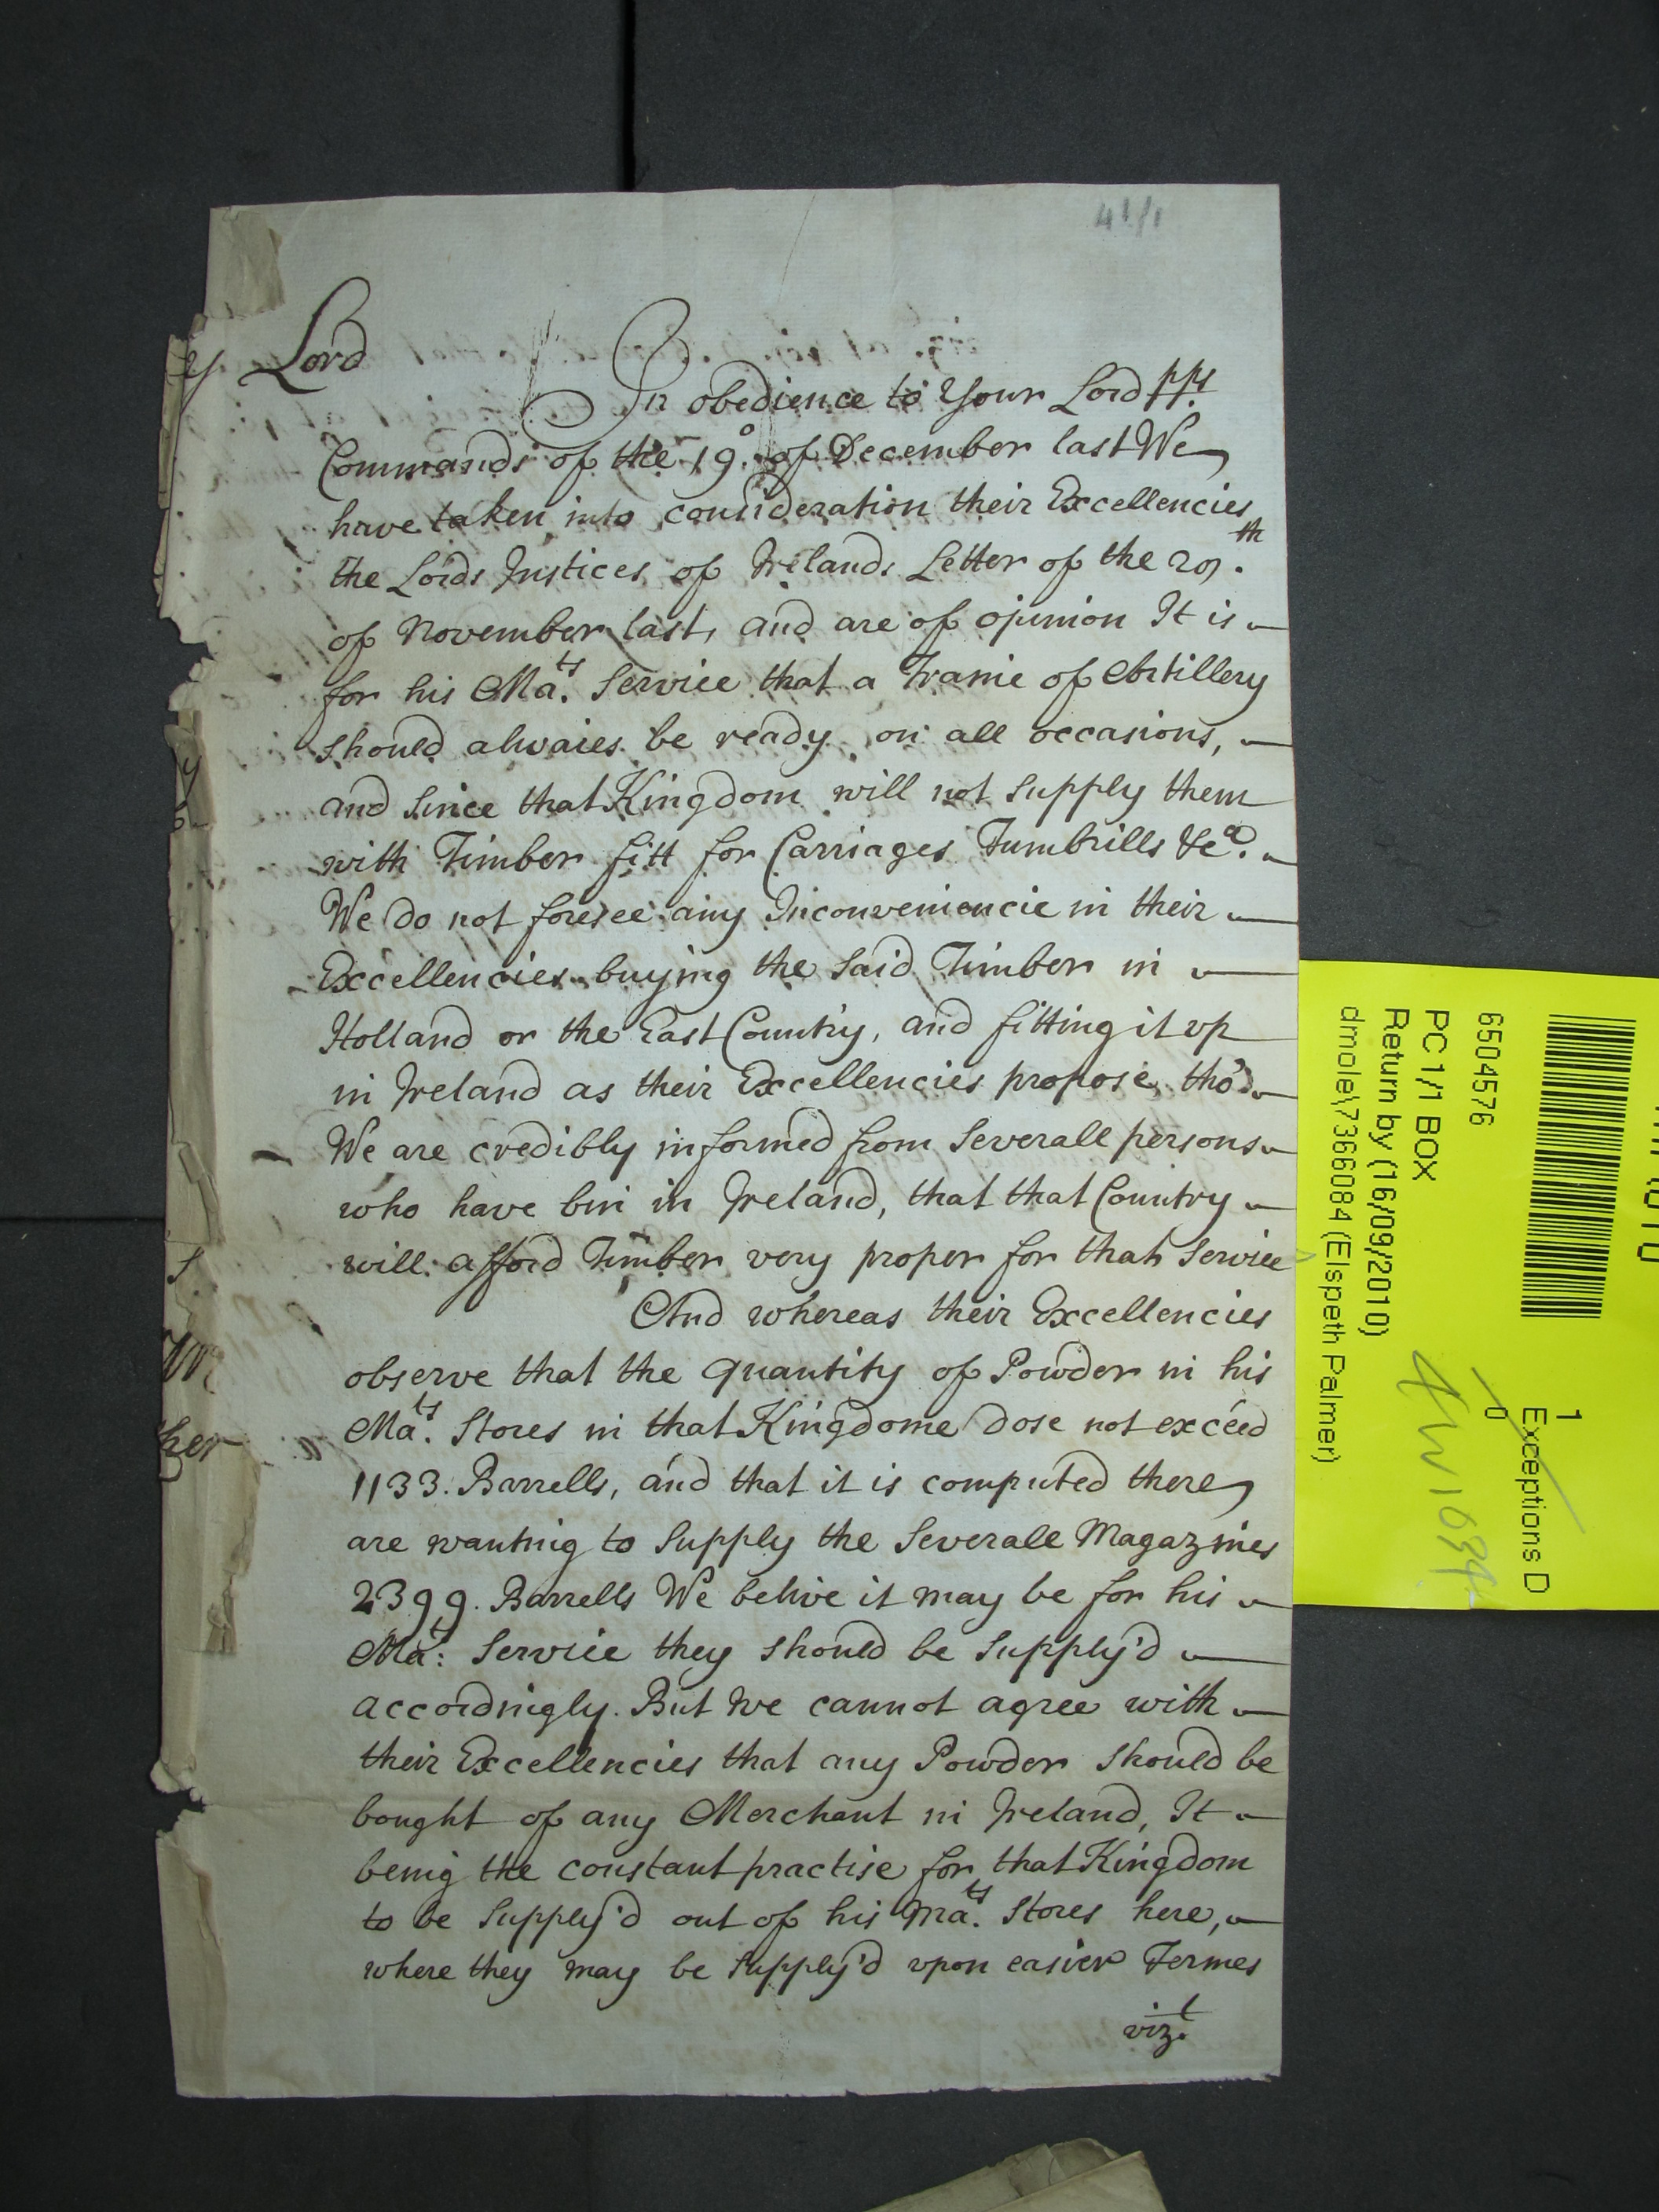 41/1
Lord
In obedience to Your Lordpps
Commands of the 19o. of December last We
have taken into consideration their Excellencies
the Lords Justices of Irelands Letter of the 29th.
of November last, and are of opinion It is
for his Mats. Service that a Traine of Artillery
should alwaies be ready on all occasions,
and since that Kingdom will not supply them
with Timber fitt for Carriages Tumbrills &ca.
We do not foresee any Inconveniencie in their
Excellencies buying the said Timber in
Holland or the East Country, and fitting it vp
in Ireland as their Excellencies propose, tho'
We are credibly informed from Severall persons
who have bin in Ireland, that that Country
will afford Timber very proper for that Service
And whereas their Excellencies
observe that the quantity of Powder in his
Mats. Stores in that Kingdome dose not exceed
1133. Barrells, and that it is computed there
are wanting to Supply the Severall Magazines
2399. Barrells We belive it may be for his
Mats: Service they should be Supply'd
accordingly. But We cannot agree with
their Excellencies that any Powder should be
bought of any Merchant in Ireland, It
being the constant practise for that Kingdom
to be Supply'd out of his Mats. Stores here,
where they may be Supply'd vpon easier Termes
vizt.
y
S
her
1
Exceptions D
0
6504576
PC 1/1 BOX
Return by (16/09/2010)
dmole\7366084 (Elspeth Palmer)